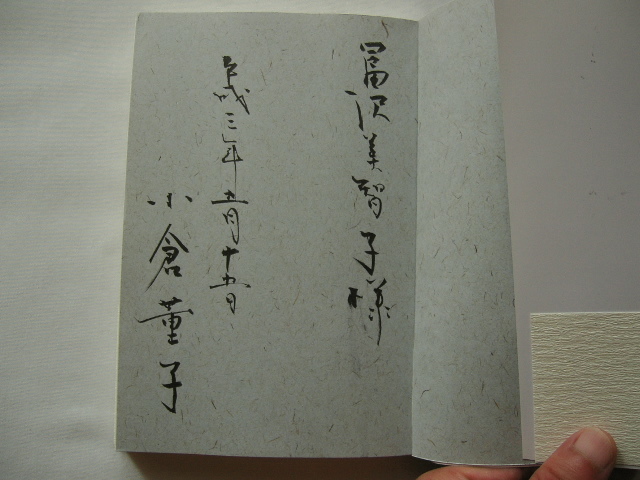 冨沢美智子様
平成三年五月十五日
小倉董子